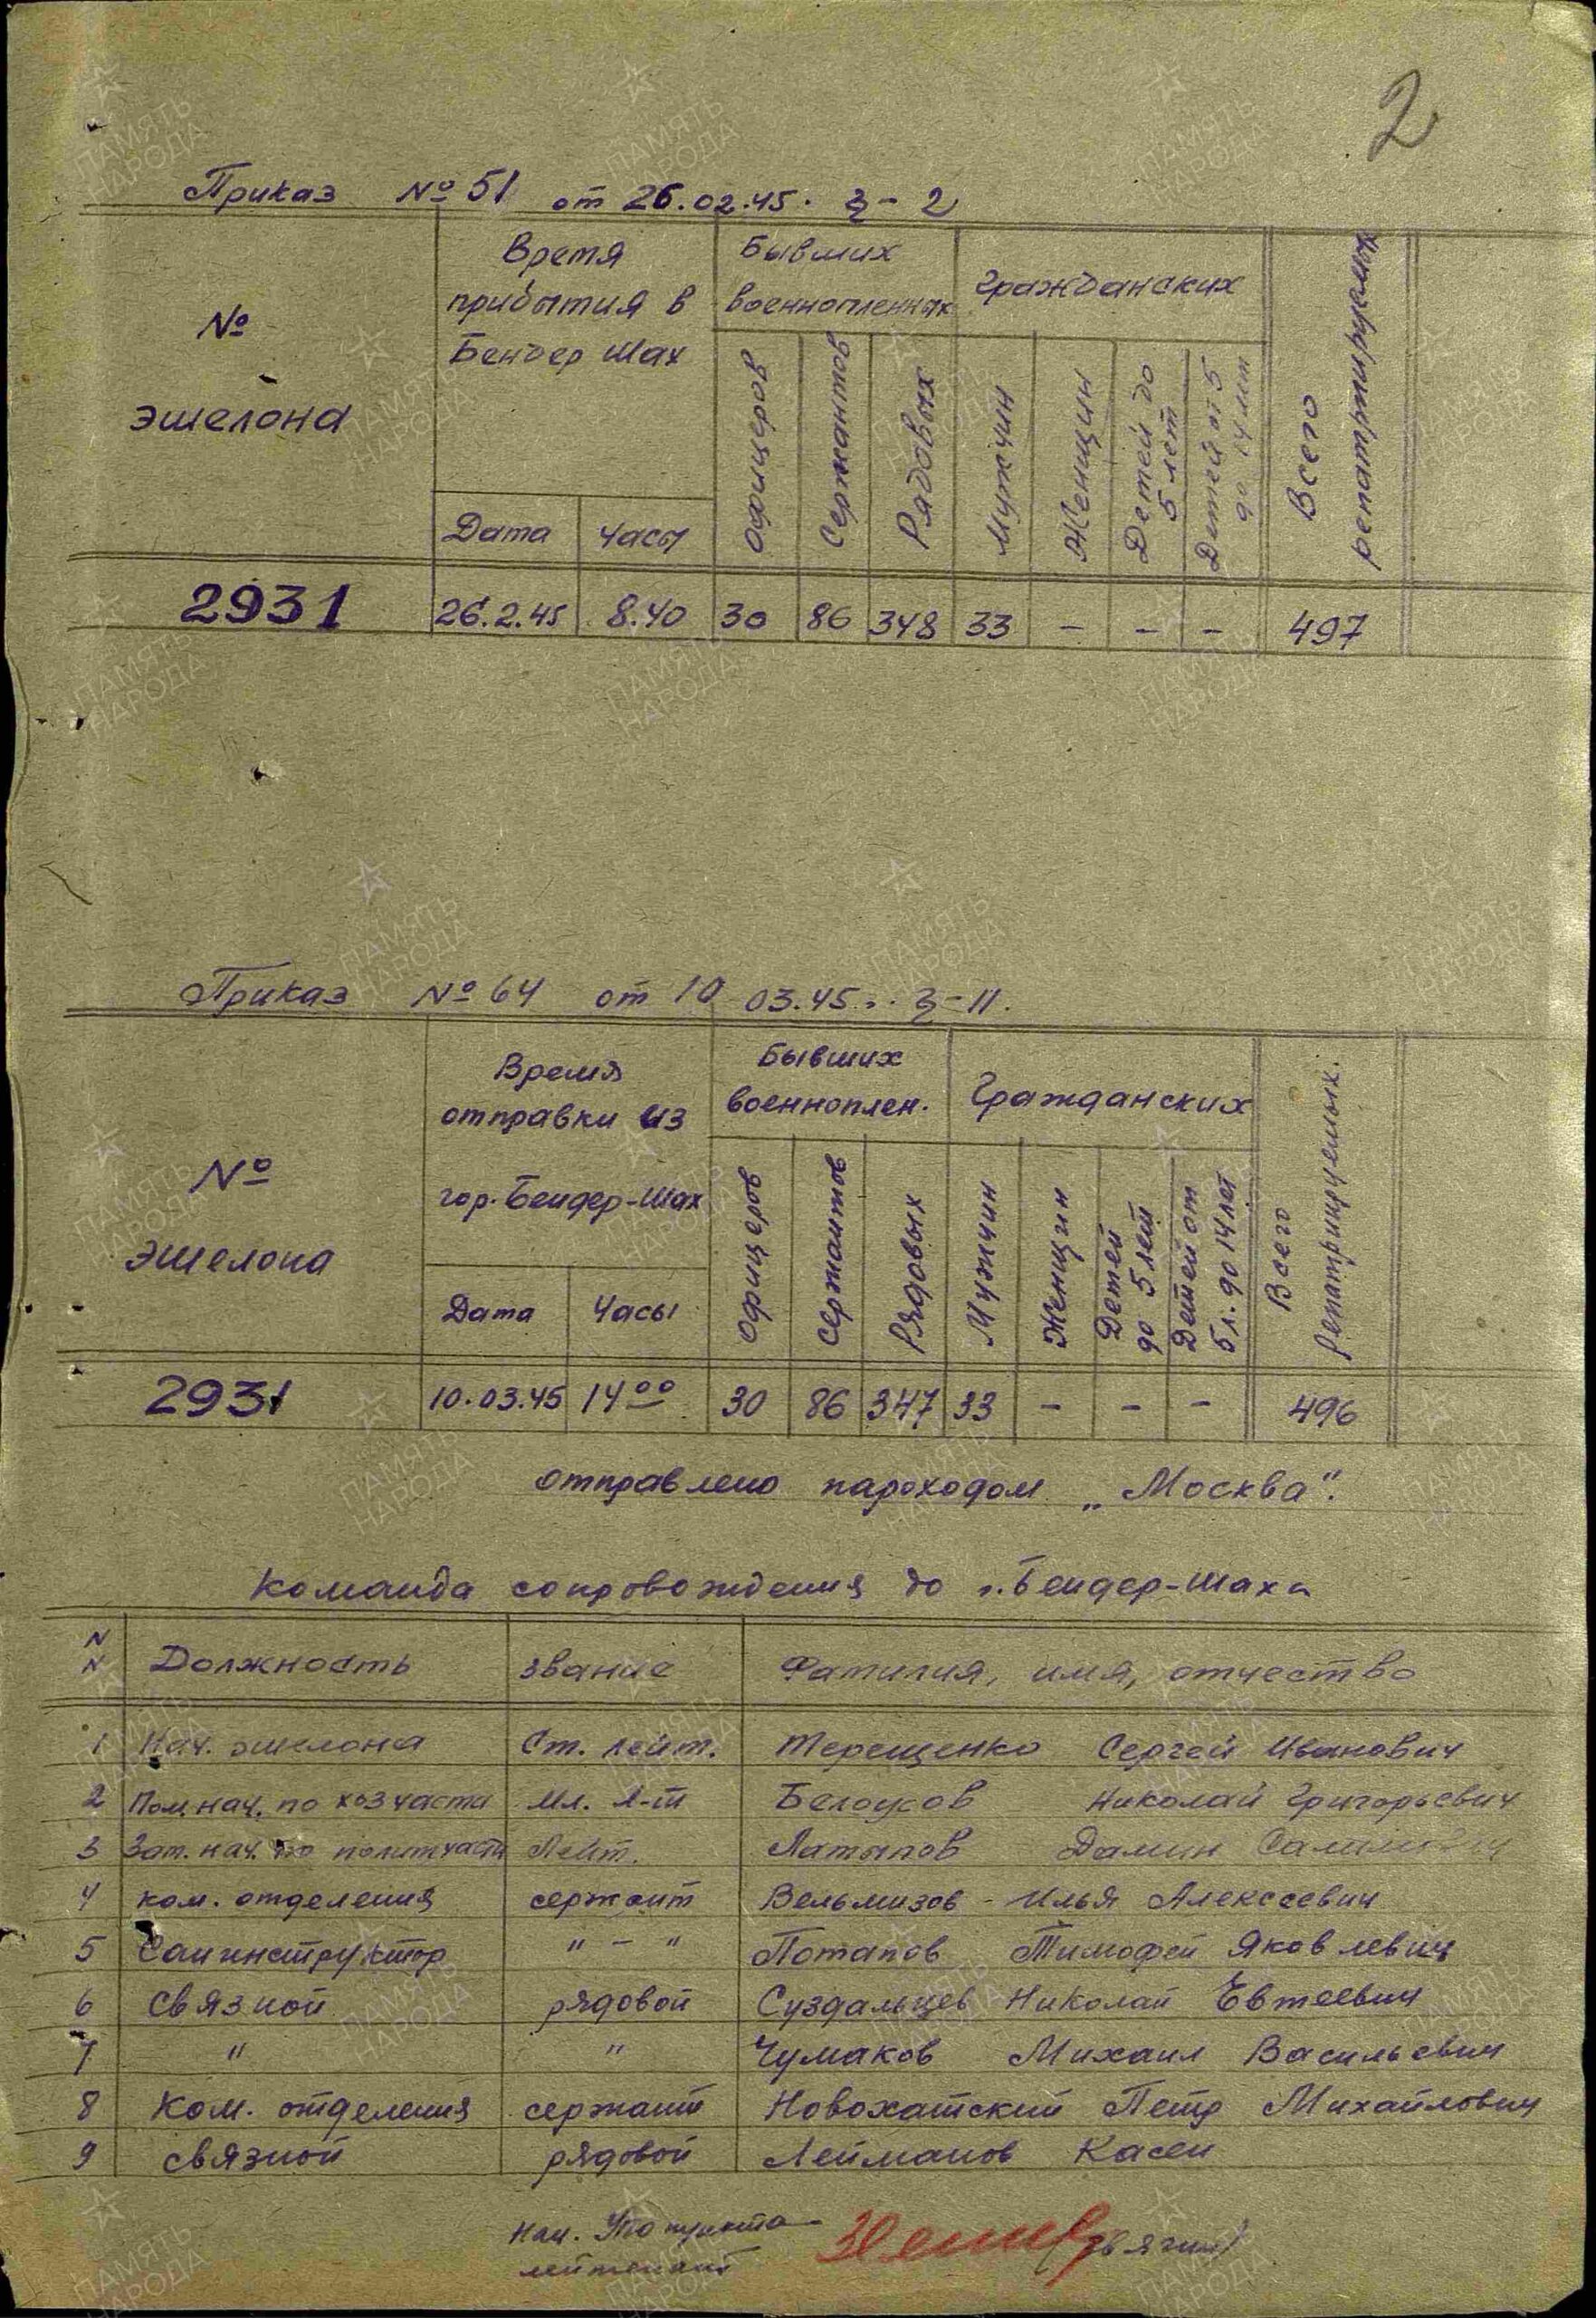 2
Приказ № 51 от 26.02.45. § - 2
№ эшелона
Время прибытия в Бендер Шах
Дата
Часы
Бывших военнопленных
Офицеров
Сержантов
Рядовых
Гражданских
Мужчин
Женщин
Детей до 5 лет
Детей от 5 до 14 лет
Всего репатриируемых
2931 26.2.45 8.40 30 86 348 33 - - - 497
Приказ № 64 от 10 03.45. § - 11.
№ эшелона
Время отправки из гор. Бендер-Шах
Дата
Часы
Бывших военноплен.
Офицеров
Сержантов
Рядовых
Гражданских
Мужчин
Женщин
Детей до 5 лет
Детей от 5 л. до 14 лет
Всего Репатриируемых.
2931 10.03.45 14 00 30 86 347 33 - - - 496
отправлено пароходом „Москва".
Команда сопровождения до г. Бендер-Шаха
N N Должность звание Фамилия, имя, отчество
1 Нач. эшелона Ст. лейт. Терещенко Сергей Иванович
2 Пом. нач. по хозчасти Мл. Л-т Белоусов Николай Григорьевич
3 Зам. нач. по политчасти Лейт. Латыпов Дамин
4 ком. отделения сержант Вельмизов - Илья Алексеевич
5 Санинструктор " - " Потапов Тимофей Яковлевич
6 Связной рядовой Суздальцев Николай Евтеевич
7 " " Чумаков Михаил Васильевич
8 Ком. отделения сержант Новохатский Петр Михайлович
9 связной рядовой Лейманов Касен
Нач. пункта
лейтенант (Звягин)
ПАМЯТЬ НАРОДА